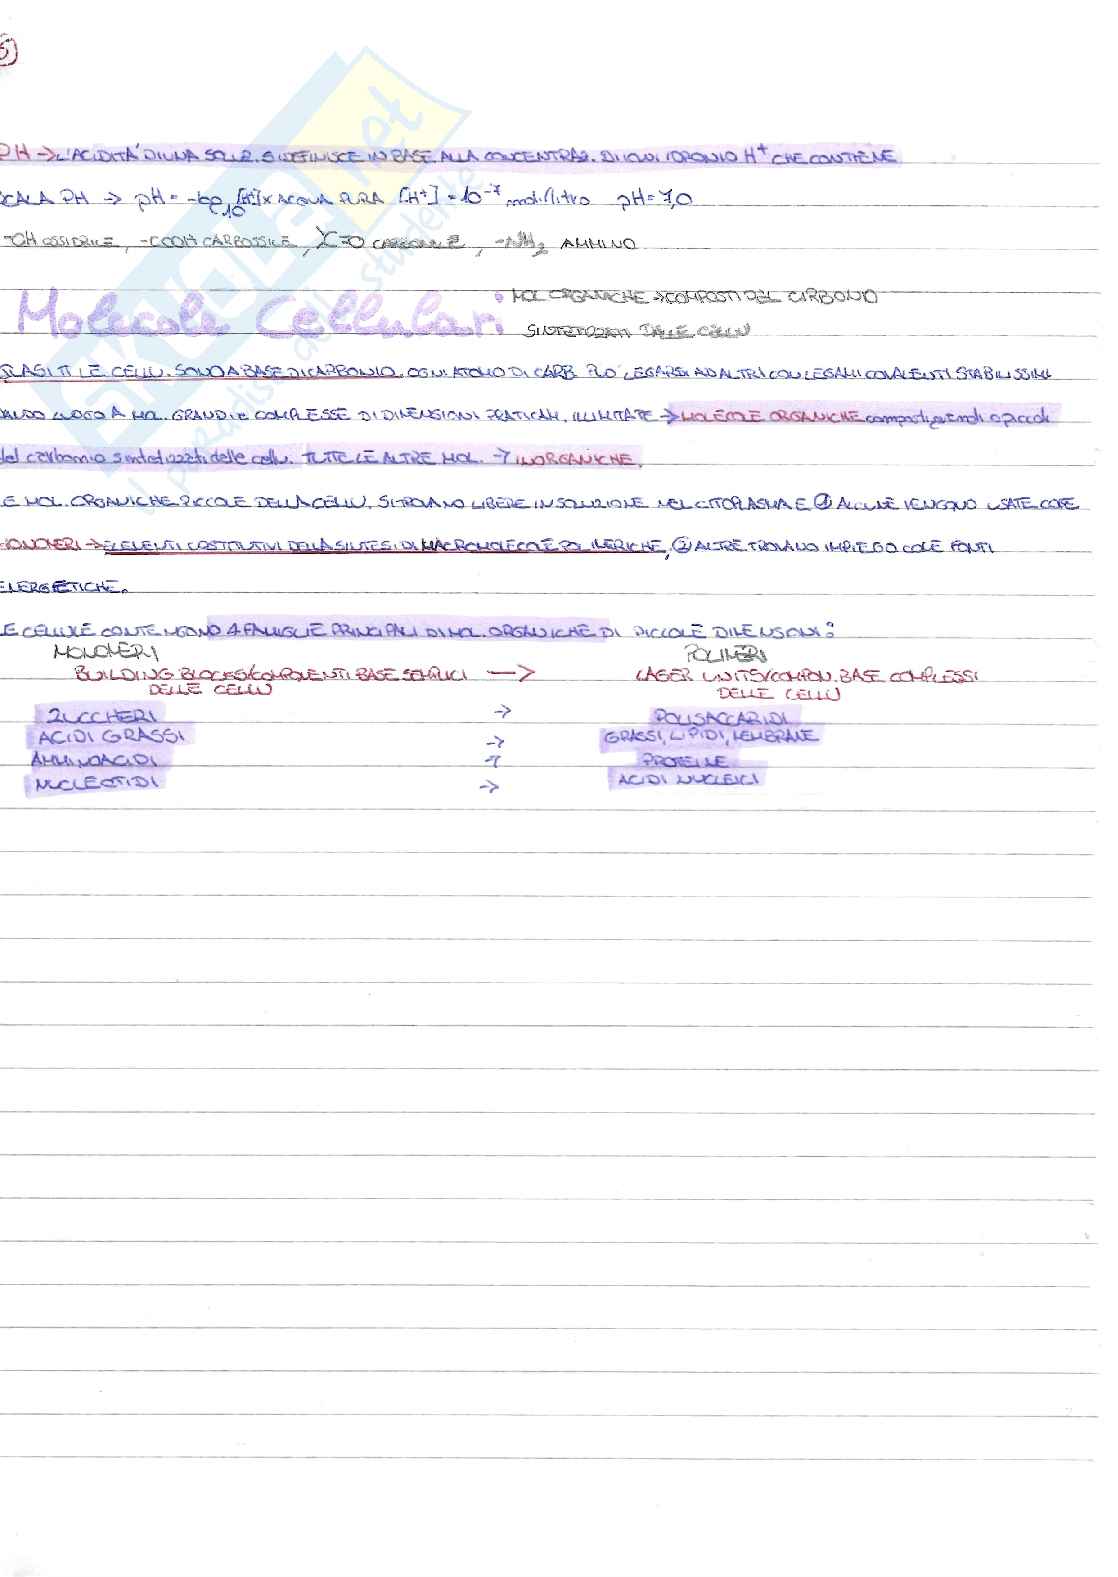 5
PH → L'ACIDITA' DI UNA SOLUZ. SI DEFINISCE IN BASE ALLA CONCENTRAZ. DI IONI IDRONIO H⁺ CHE CONTIENE
SCALA PH → pH = -log₁₀[H⁺] x ACQUA PURA [H⁺] = 10⁻⁷ moli/litro pH = 7,0
-OH OSSIDRILE, -COOH CARBOSSILE, C=O CARBONILE, -NH₂ AMMINO
Molecole Cellulari : MOL ORGANICHE → COMPOSTI DEL CARBONIO
SINTETIZZATI DALLE CELLU
QUASI TT LE CELLU. SONO A BASE DI CARBONIO. OGNI ATOMO DI CARB PUO' LEGARSI AD ALTRI CON LEGAMI COVALENTI STABILISSIMI
DANDO LUOGO A MOL. GRANDI E COMPLESSE DI DIMENSIONI PRATICAM. ILLIMITATE → MOLECOLE ORGANICHE composti grandi o piccoli
del carbonio sintetizzati dalle cellu. TUTTE LE ALTRE MOL. → INORGANICHE.
LE MOL. ORGANICHE PICCOLE DELLA CELLU. SI TROVANO LIBERE IN SOLUZIONE NEL CITOPLASMA E ① ALCUNE VENGONO USATE COME
MONOMERI → ELEMENTI COSTITUTIVI DELLA SINTESI DI MACROMOLECOLE POLIMERICHE, ② ALTRE TROVANO IMPIEGO COME FONTI
ENERGETICHE.
LE CELLULE CONTENGONO 4 FAMIGLIE PRINCIPALI DI MOL. ORGANICHE DI PICCOLE DIMENSIONI:
MONOMERI POLIMERI
BUILDING BLOCKS/COMPONENTI BASE SEMPLICI → LAGER UNITS/COMPON. BASE COMPLESSI
DELLE CELLU DELLE CELLU
ZUCCHERI → POLISACCARIDI
ACIDI GRASSI → GRASSI, LIPIDI, MEMBRANE
AMMINOACIDI → PROTEINE
NUCLEOTIDI → ACIDI NUCLEICI
SKUOLA.net
il paradiso dello studente